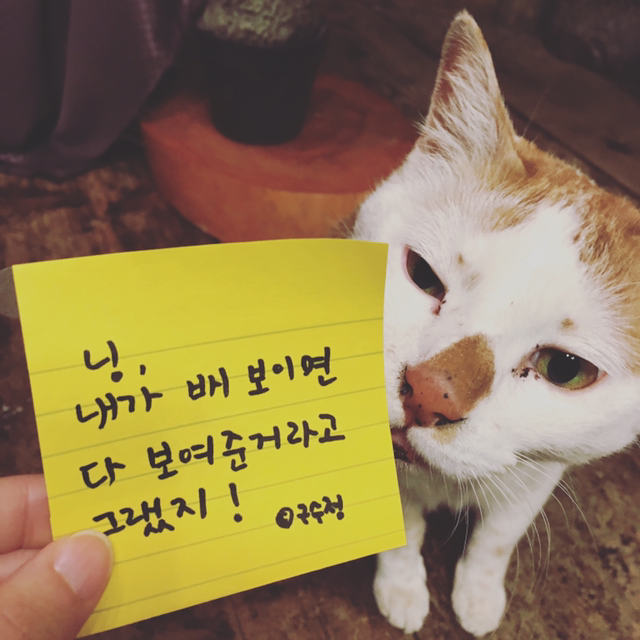 닝,
내가 배 보이면
다 보여준거라고
그랬지!
©구수정